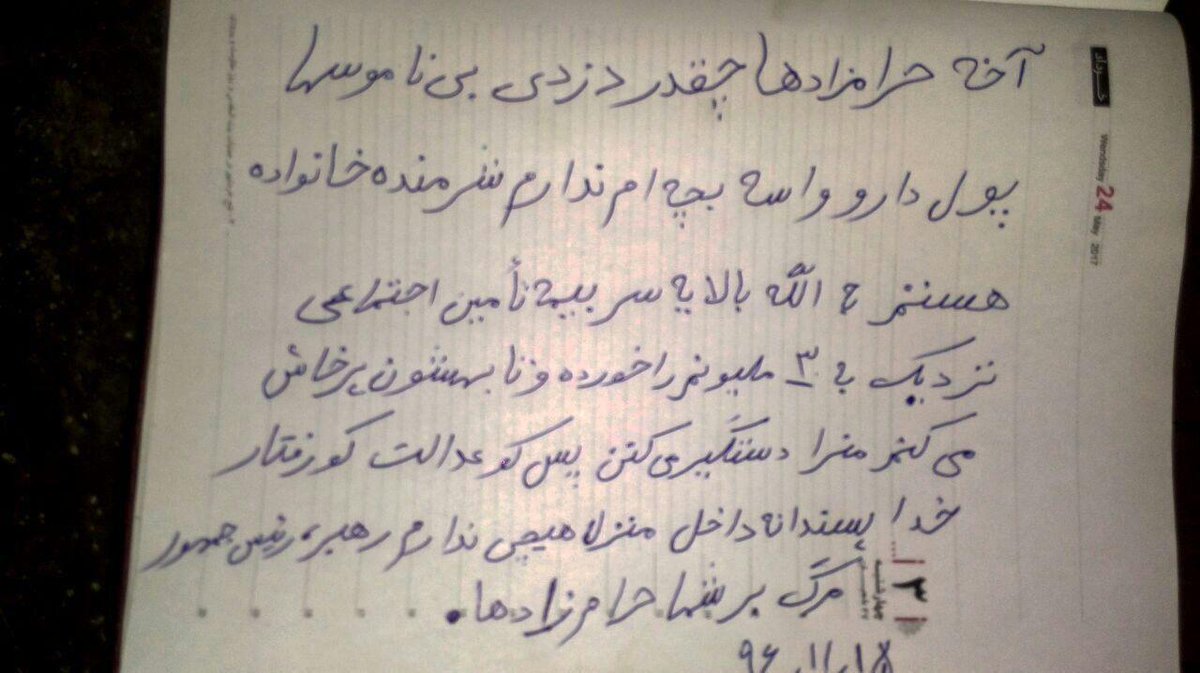 آخه حرامزادها چقدر دزدی بی ناموسها
پول دارو واسه بچه ام ندارم شرمنده خانواده
هستم به الله بالایه سر بیمه تأمین اجتماعی
نزدیک به ۳۰ ملیونم را خورده و تا بهشون پرخاش
می کنم منرا دستگیر می کنن پس کو عدالت کو رفتار
خدا پسندانه داخل منزل هیچی ندارم رهبر، رئیس جمهور
مرگ بر شما حرامزادها.
۹۶
خرداد
Wensday 24 May 2017
۳
چهارشنبه